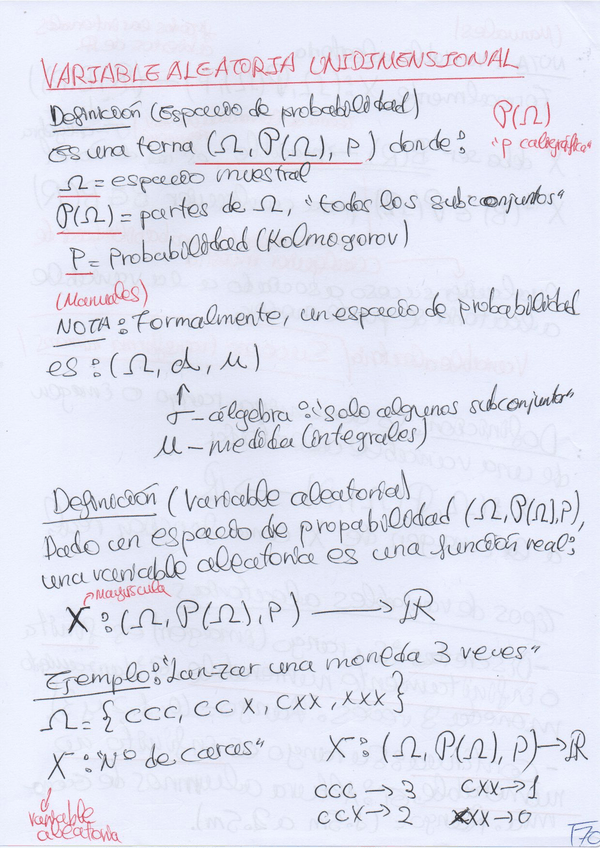 VARIABLE ALEATORIA UNIDIMENSIONAL
Definición (Espacio de probabilidad)
P(Ω)
Es una terna (Ω, P(Ω), p) donde:
"p caligráfica"
Ω = espacio muestral
P(Ω) = partes de Ω, "todos los subconjuntos"
P = Probabilidad (Kolmogorov)
(Manuales)
NOTA: Formalmente, un espacio de probabilidad
es: (Ω, 𝒜, μ)
↑
σ-álgebra: "solo algunos subconjuntos"
μ - medida (integrales)
Definición (variable aleatoria)
Dado un espacio de propabilidad (Ω, P(Ω), p),
una variable aleatoria es una función real:
→ Mayúscula
X: (Ω, P(Ω), p) → ℝ
Ejemplo: "Lanzar una moneda 3 veces"
Ω = { CCC, CCX, CXX, XXX }
X: "Nº de caras" X: (Ω, P(Ω), p) → ℝ
CCC → 3 CXX → 1
CCX → 2 XXX → 0
variable
aleatoria
T70